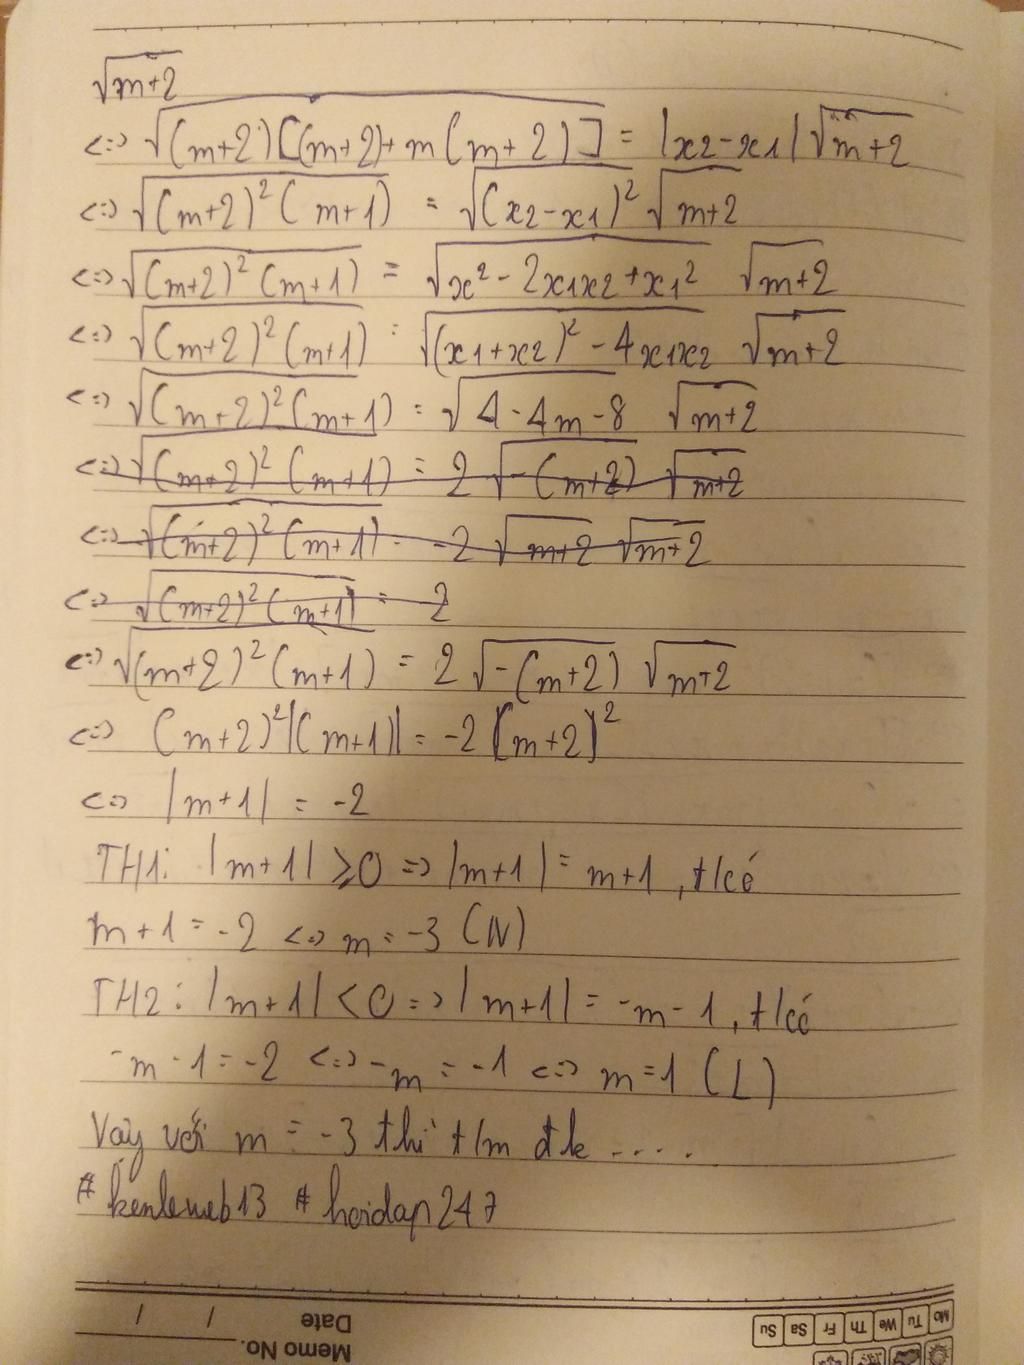 √(m+2)
<=> √((m+2)[(m+2)+m(m+2)]) = |x2-x1|√(m+2)
<=> √((m+2)²(m+1)) = √((x2-x1)²) √(m+2)
<=> √((m+2)²(m+1)) = √(x²-2x1x2+x1²) √(m+2)
<=> √((m+2)²(m+1)) = √((x1+x2)²-4x1x2) √(m+2)
<=> √((m+2)²(m+1)) = √(4-4m-8) √(m+2)
<=> √((m+2)²(m+1)) = 2 √(-(m+2)) √(m+2)
<=> √((m+2)²(m+1)) = -2 √(m+2) √(m+2)
<=> √((m+2)²(m+1)) = 2
<=> √((m+2)²(m+1)) = 2 √(-(m+2)) √(m+2)
<=> (m+2)²|(m+1)| = -2 (m+2)²
<=> |m+1| = -2
TH1: |m+1| ≥ 0 => |m+1| = m+1, t/có
m+1 = -2 <=> m = -3 (N)
TH2: |m+1| < 0 => |m+1| = -m-1, t/có
-m-1 = -2 <=> -m = -1 <=> m = 1 (L)
Vậy với m = -3 thì t/m đk .....
# kenleweb13 # hoidap247
Memo No.
Date / /
Mo Tu We Th Fr Sa Su